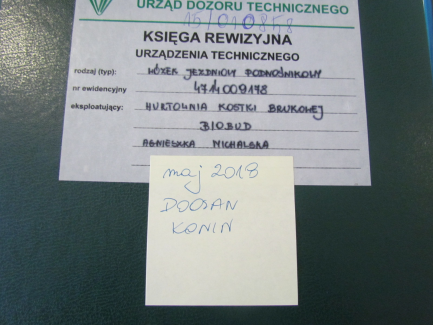 URZĄD DOZORU TECHNICZNEGO
15/010858
KSIĘGA REWIZYJNA
URZĄDZENIA TECHNICZNEGO
rodzaj (typ): WÓZEK JEZDNIOWY PODNOŚNIKOWY
nr ewidencyjny 4714009178
eksploatujący: HURTOWNIA KOSTKI BRUKOWEJ
BIOBUD
AGNIESZKA MICHALSKA
maj 2018
DOOSAN
KONIN